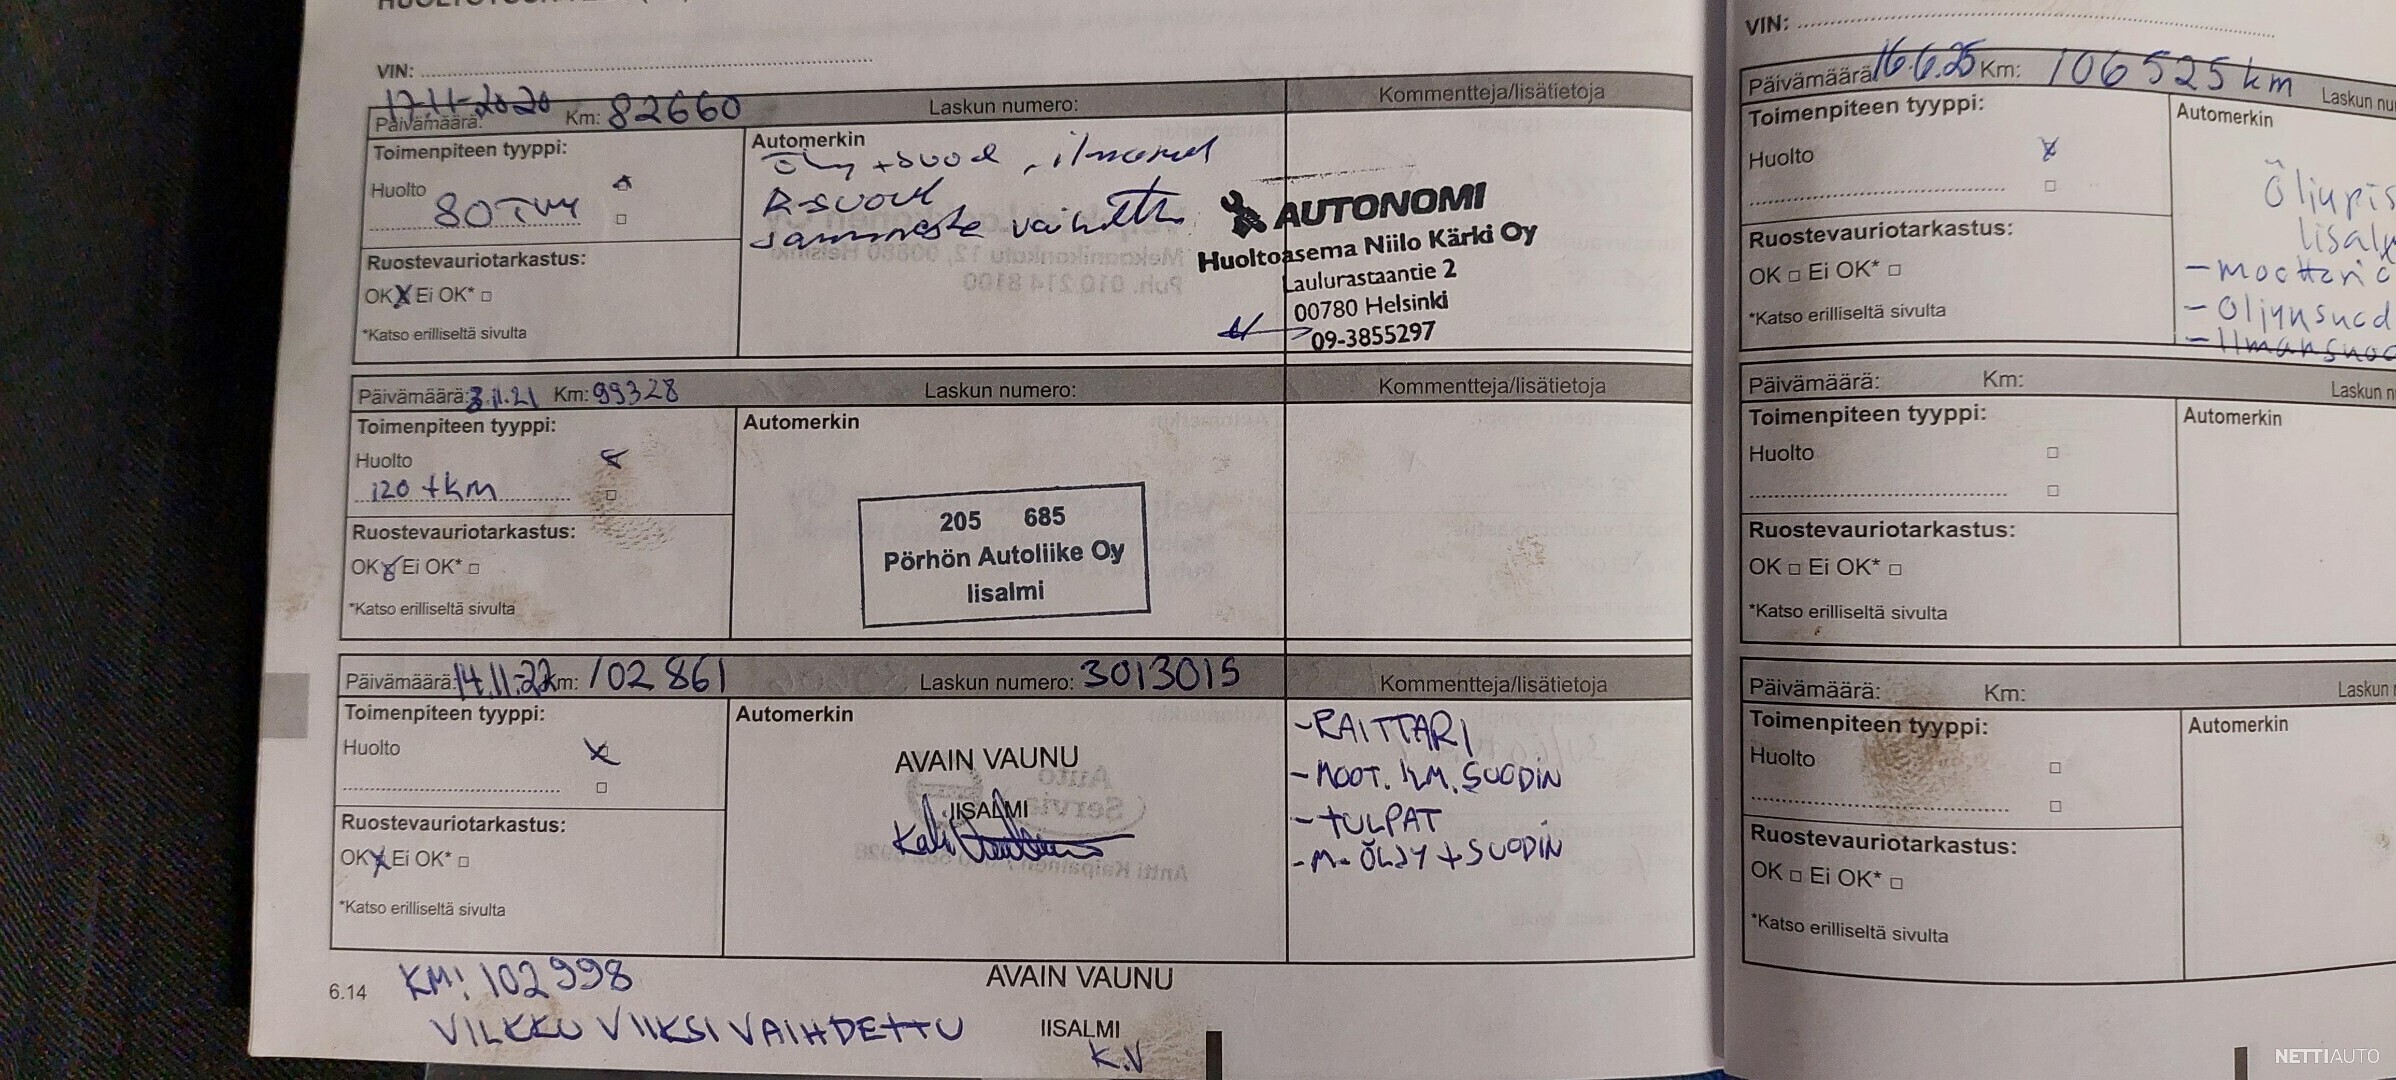 VIN:
Päivämäärä: 17.11-2020 Km: 82660 Laskun numero: Kommentteja/lisätietoja
Toimenpiteen tyyppi:
Automerkin
Huolto
80 Tkm
Öljy + suod, ilmansuod
R-suod
Jarruneste vaihdettu
Ruostevauriotarkastus:
OK X Ei OK* □
*Katso erilliseltä sivulta
AUTONOMI
Huoltoasema Niilo Kärki Oy
Laulurastaantie 2
00780 Helsinki
09-3855297
Päivämäärä: 3.11.21 Km: 99328 Laskun numero: Kommentteja/lisätietoja
Toimenpiteen tyyppi:
Automerkin
Huolto
120 tkm
Ruostevauriotarkastus:
OK X Ei OK* □
*Katso erilliseltä sivulta
205 685
Pörhön Autoliike Oy
Iisalmi
Päivämäärä: 14.11.-22 Km: 102 861 Laskun numero: 3013015 Kommentteja/lisätietoja
Toimenpiteen tyyppi:
Automerkin
Huolto X
Ruostevauriotarkastus:
OK X Ei OK* □
*Katso erilliseltä sivulta
AVAIN VAUNU
IISALMI
- RAITTARI
- MOOT. ILM. SUODIN
- TULPAT
- M- ÖLJY + SUODIN
6.14
KM: 102998
VILKKU VIIKSI VAIHDETTU
AVAIN VAUNU
IISALMI
K.V
VIN:
Päivämäärä 16.6.25 Km: 106 525 km Laskun nu
Toimenpiteen tyyppi:
Automerkin
Huolto X
Öljynpis
Iisalm
- moottoriö
- Öljynsuod
- Ilmansuod
Ruostevauriotarkastus:
OK □ Ei OK* □
*Katso erilliseltä sivulta
Päivämäärä: Km: Laskun n
Toimenpiteen tyyppi:
Automerkin
Huolto
Ruostevauriotarkastus:
OK □ Ei OK* □
*Katso erilliseltä sivulta
Päivämäärä: Km: Laskun
Toimenpiteen tyyppi:
Automerkin
Huolto
Ruostevauriotarkastus:
OK □ Ei OK* □
*Katso erilliseltä sivulta
NETTIAUTO